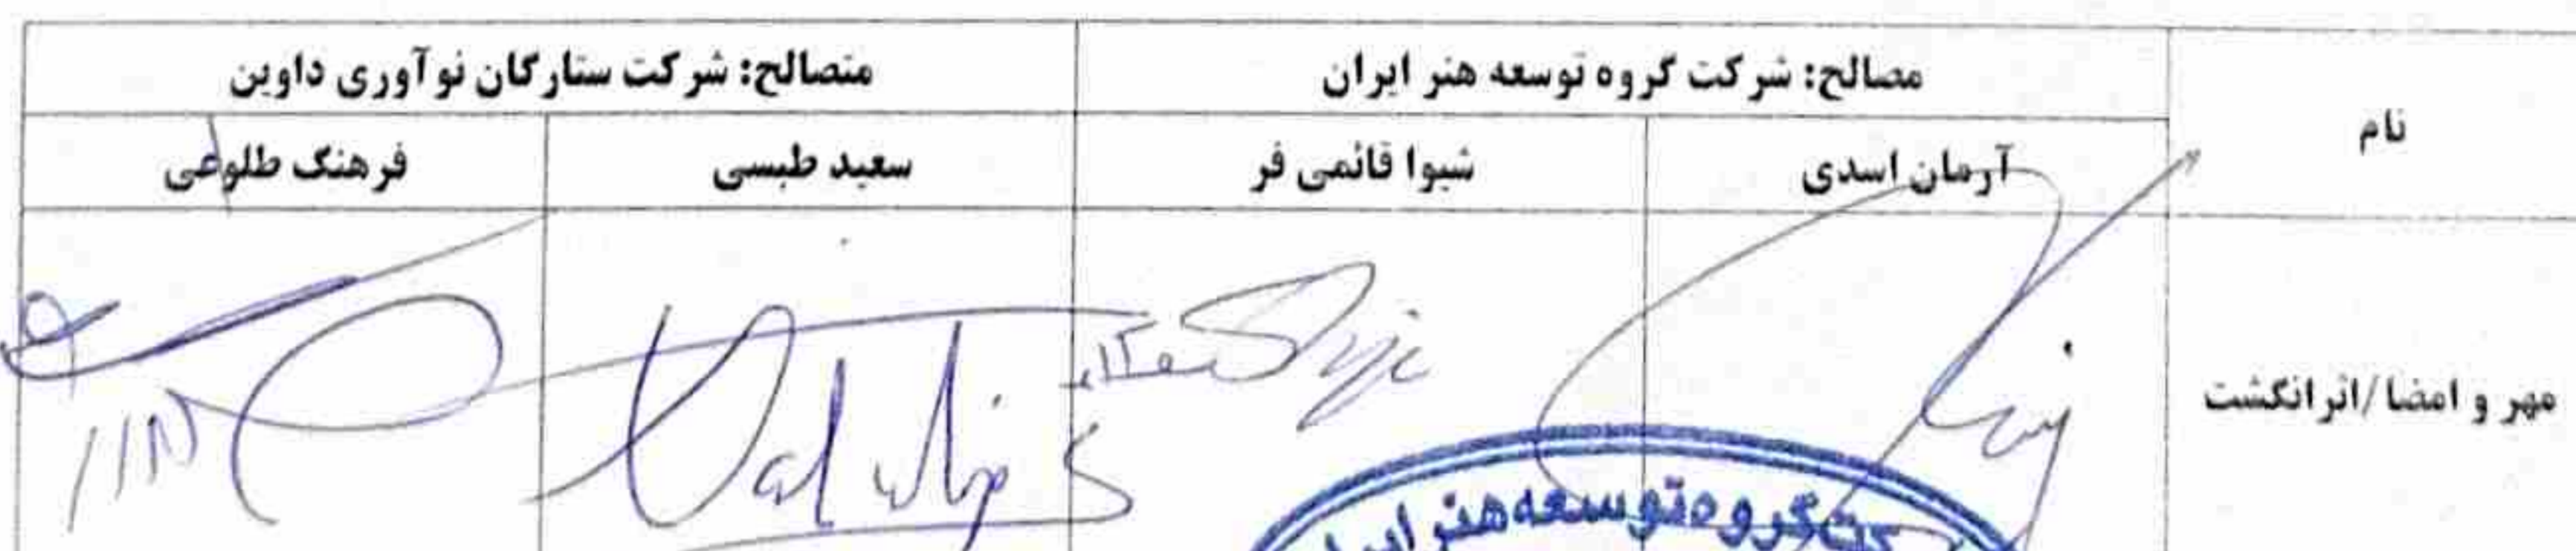 مصالح: شرکت گروه توسعه هنر ایران
متصالح: شرکت ستارگان نوآوری داوین
نام
آرمان اسدی
شیوا قائمی فر
سعید طبسی
فرهنگ طلوعی
مهر و امضا /اثر انگشت
گروه توسعه هنر